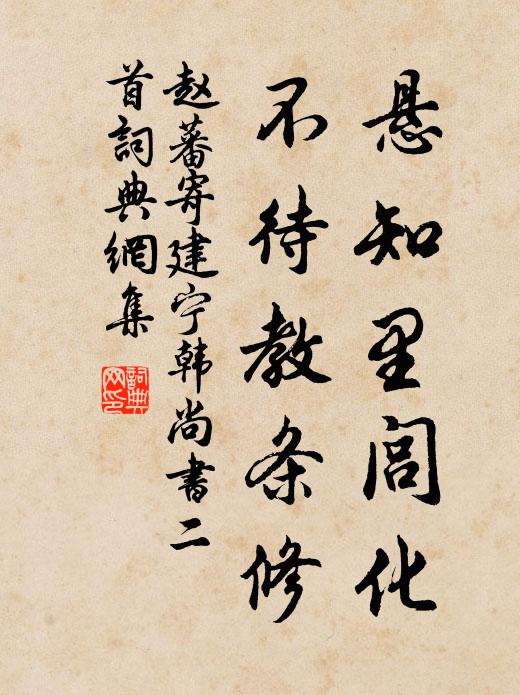 悬知里闾化
不待教条修
赵蕃寄建宁韩尚书二
首詞典網集
詞典
网印